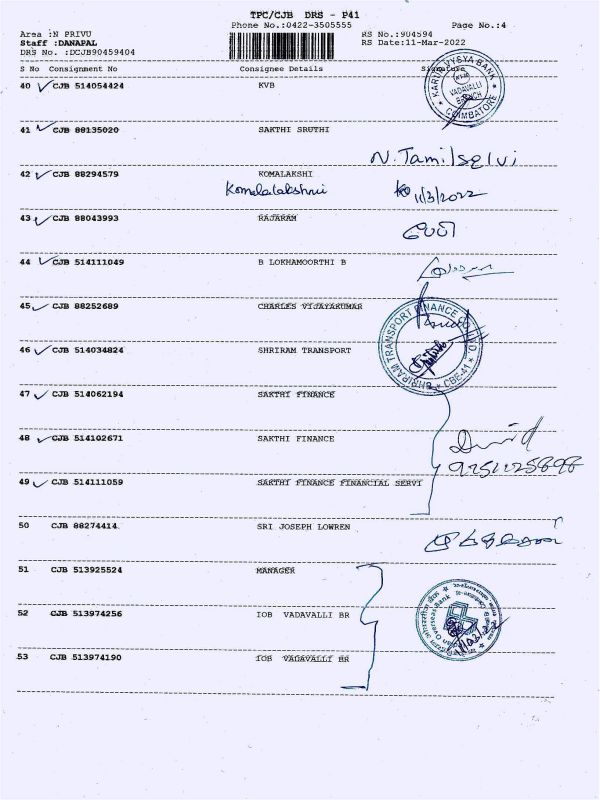 TPC/CJB DRS - P41
Phone No.:0422-3505555 Page No.:4
Area :N PRIVU RS No.:904594
Staff :DANAPAL RS Date:11-Mar-2022
DRS No. :DCJB90459404
S No Consignment No Consignee Details Signature
40 CJB 514054424 KVB
KARUR VYSYA BANK
VADAVALLI
BRANCH
COIMBATORE
41 CJB 88135020 SAKTHI SRUTHI
N. Tamilselvi
42 CJB 88294579 KOMALAKSHI
Komalalakshmi 11/3/2022
43 CJB 88043993 RAJARAM
44 CJB 514111049 B LOKHAMOORTHI B
45 CJB 88252689 CHARLES VIJAYAKUMAR
46 CJB 514034824 SHRIRAM TRANSPORT
SHRIRAM TRANSPORT FINANCE CO. LTD. CBE-41
47 CJB 514062194 SAKTHI FINANCE
48 CJB 514102671 SAKTHI FINANCE
David
49 CJB 514111059 SAKTHI FINANCE FINANCIAL SERVI
50 CJB 88274414 SRI JOSEPH LOWREN
51 CJB 513925524 MANAGER
52 CJB 513974256 IOB VADAVALLI BR
Indian Overseas Bank
53 CJB 513974190 IOB VADAVALLI BR